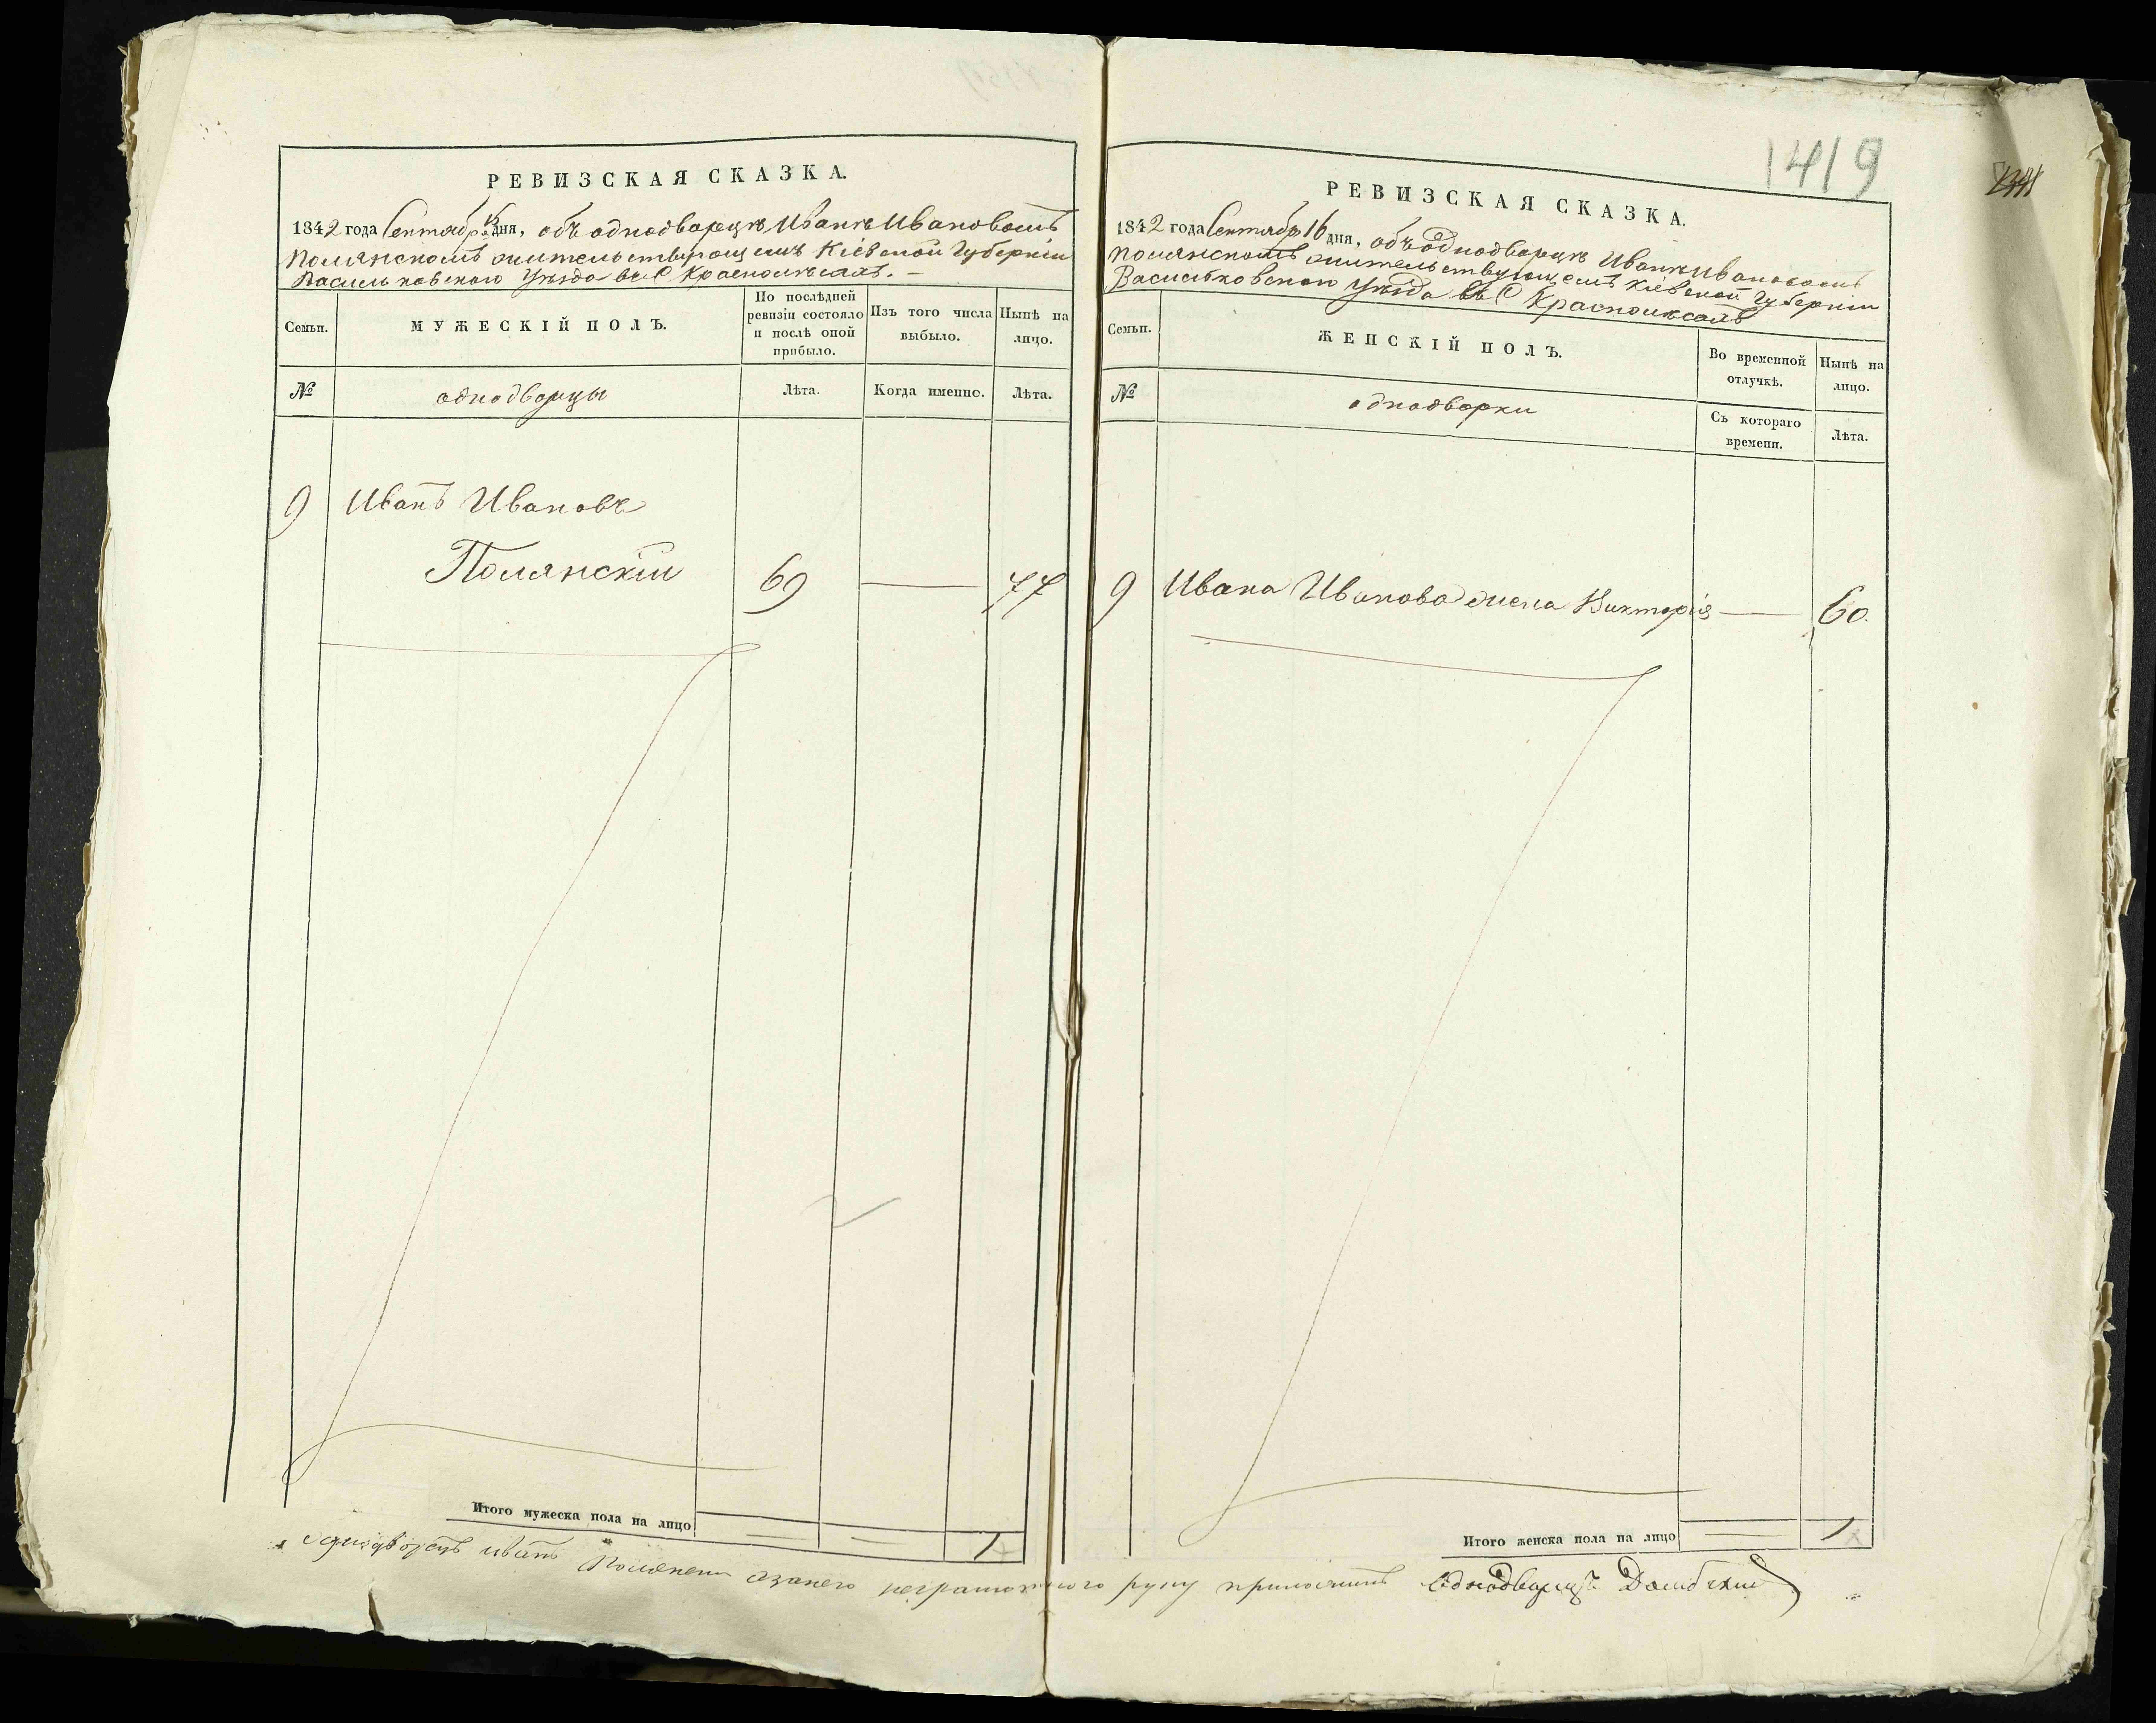 1419
РЕВИЗСКАЯ СКАЗКА.
1842 года Сентябр дня, объ однодворцѣ Иванѣ Ивановомъ
Полянскомъ жительствующемъ Кіевской Губерніи
Васильковского Уѣзда въ С Краснолѣсахъ. –
Семьи.
МУЖЕСКІЙ ПОЛЪ.
По послѣдней ревизіи состояло и послѣ оной прибыло.
Изъ того числа выбыло.
Нынѣ на лицо.
№
однодворцы
Лѣта.
Когда именно.
Лѣта.
9 Иванъ Ивановъ
Полянскій 69 — 77
Итого мужеска пола на лицо
= = 1
РЕВИЗСКАЯ СКАЗКА.
1842 года Сентябр 16 дня, объ Однодворцѣ Иванѣ Ивановомъ
Полянскомъ жительствующемъ Кіевской Губерніи
Васильковского Уѣзда въ С Краснолѣсахъ
Семьи.
ЖЕНСКІЙ ПОЛЪ.
Во временной отлучкѣ.
Нынѣ на лицо.
№
однодворки
Съ котораго времени.
Лѣта.
9 Ивана Иванова жена Викторія — 60.
Итого женска пола на лицо
= 1
однодворецъ иванъ Полянски азанего неграмотного руку приложилъ Однодворецъ Домбскій